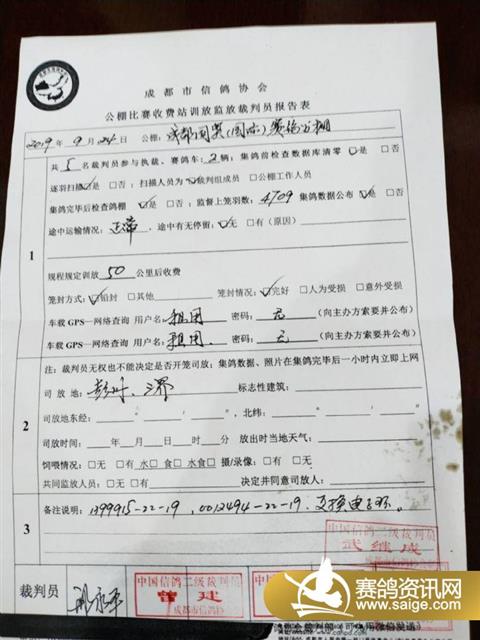 成都市信鸽协会
公棚比赛收费站训放监放裁判员报告表
2019年9月24日 公棚：成都国奥(国际)赛鸽公棚
共 5 名裁判员参与执裁、赛鸽车：2 辆；集鸽前检查数据库清零 ☑是 □否
逐羽扫描☑是 □否；扫描人员为☑裁判组成员 □公棚工作人员
集鸽完毕后检查鸽棚 ☑是 □否；监督上笼羽数：4709 集鸽数据公布☑是 □否
途中运输情况：正常，途中有无停留：☑无 □有（原因）
1
规程规定训放 50 公里后收费
笼封方式：☑铅封 □其他 笼封情况：☑完好 □人为受损 □意外受损
车载 GPS—网络查询 用户名：租用 密码：无 （向主办方索要并公布）
车载 GPS—网络查询 用户名：租用. 密码：无 （向主办方索要并公布）
注：裁判员无权也不能决定是否开笼司放；集鸽数据、照片在集鸽完毕后一小时内立即上网
司放地：彭州、 标志性建筑：
2
司放地东经： ° ′ ″ 北纬： ° ′ ″
司放时间： 年 月 日 时 分 放出时当地天气：
饲喂情况：□无 □有 水□ 食□ 水食□ 摄/录像：□有 □无
共同监放人员：□无 □有 决定并同意司放人：
3
备注说明：1399915-22-19、0012494-22-19、交换电子环。
裁判员
中国信鸽二级裁判员
曾建
成都市信鸽协
中国信鸽二级裁判员
武继成
赛鸽资讯网
www.saige.com